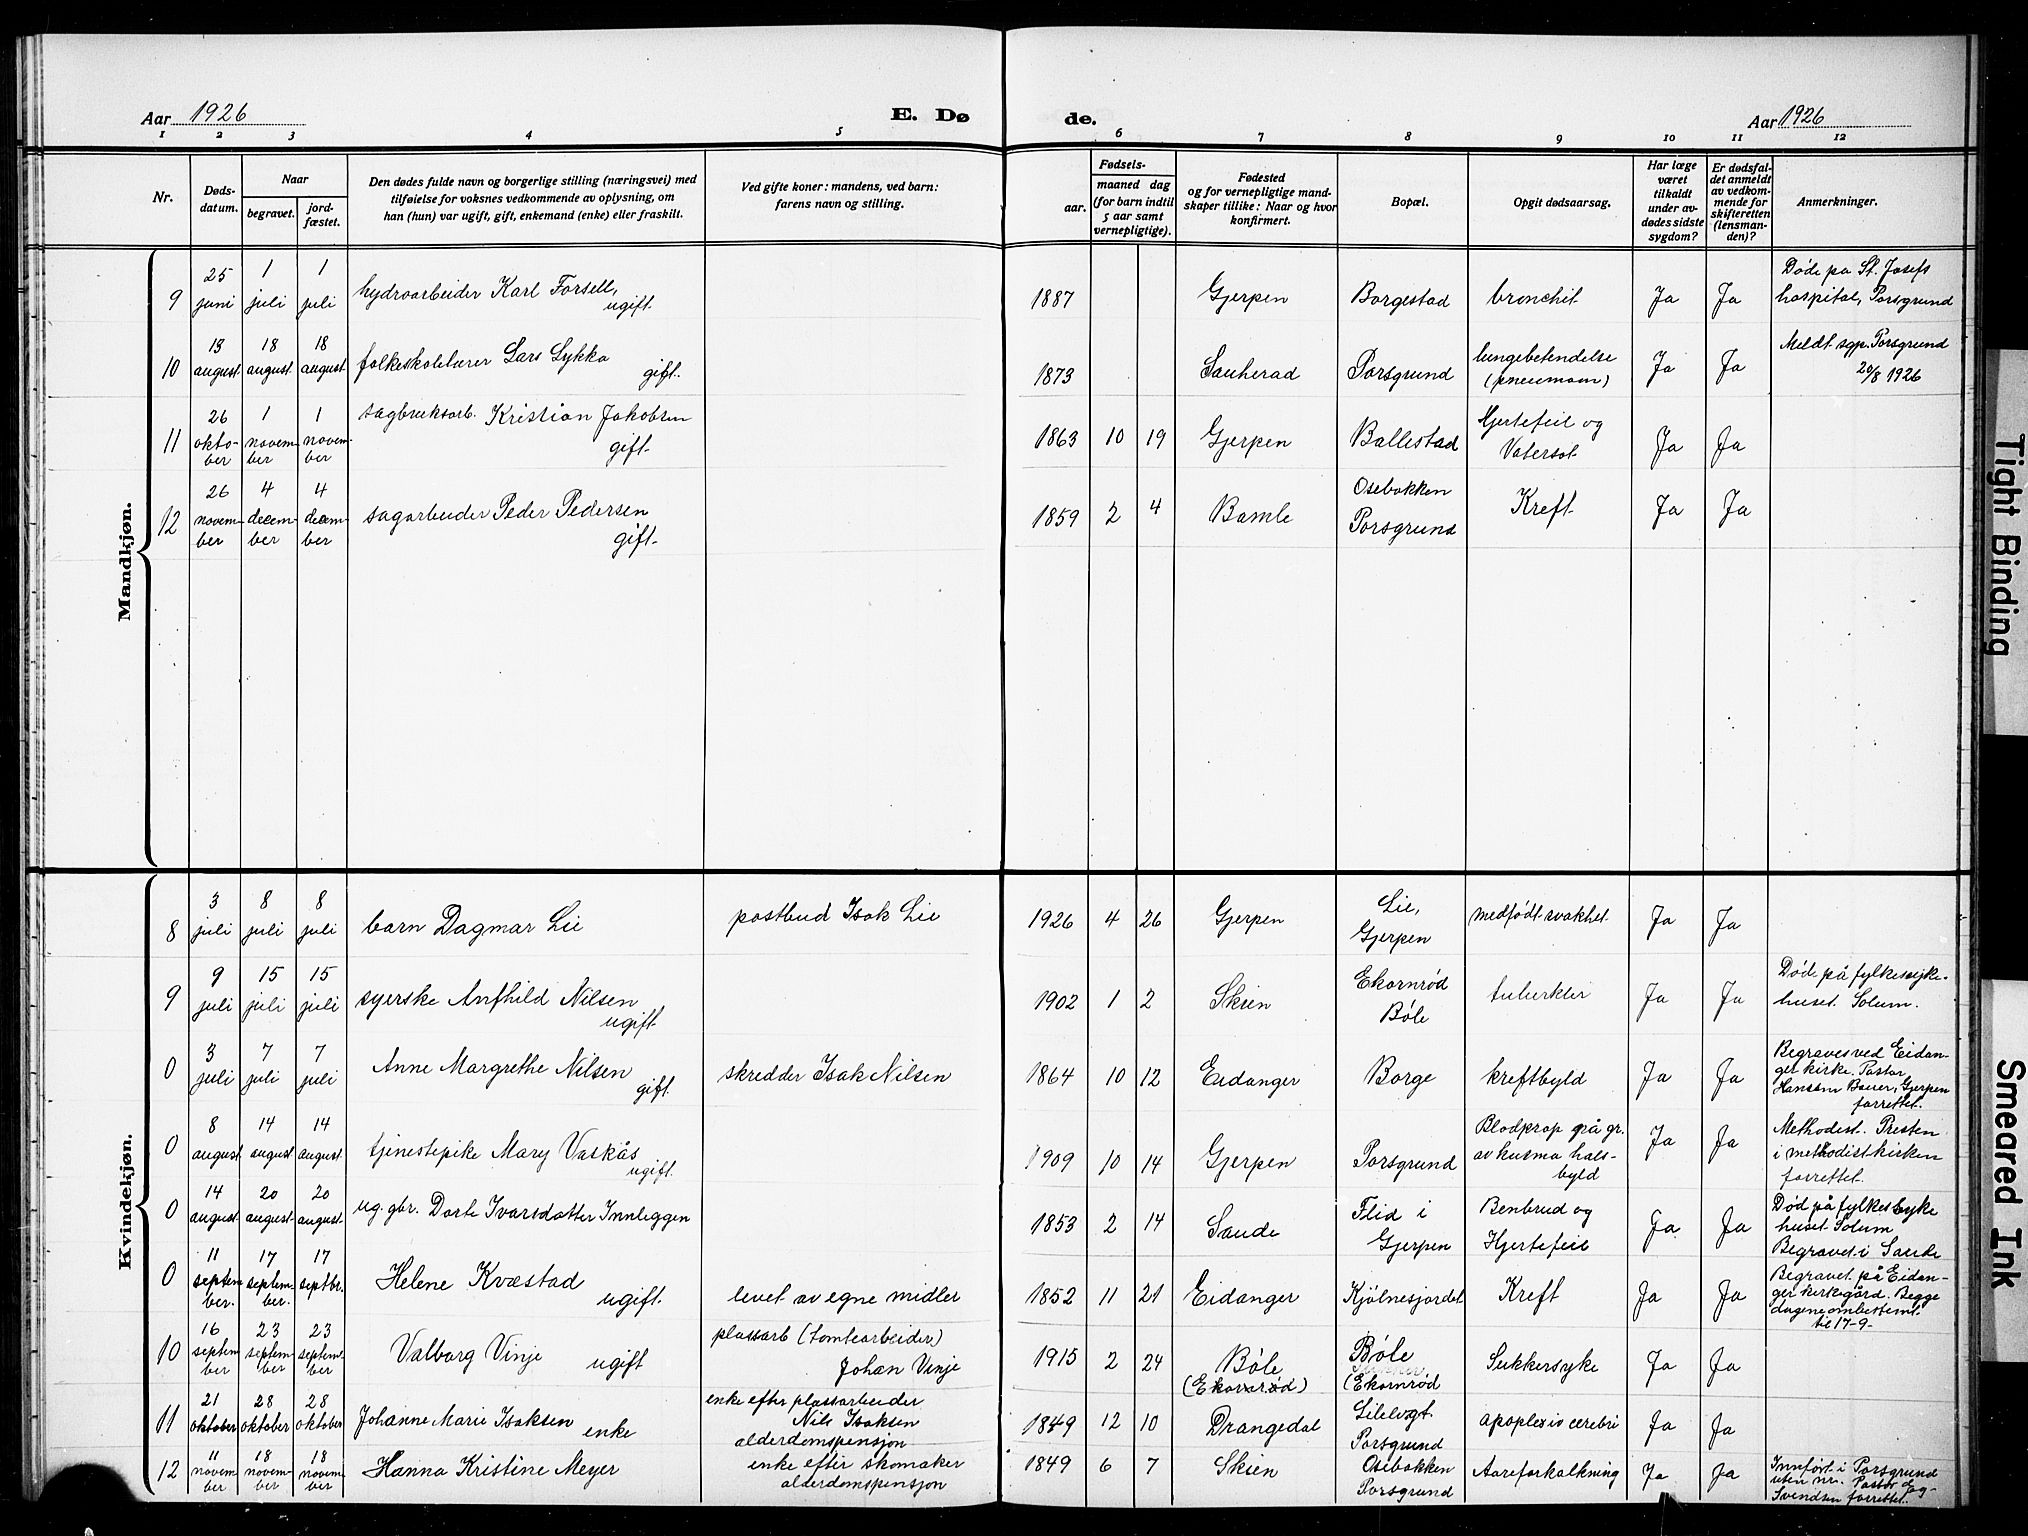 Aar 1926
E. Døde.
Aar 1926
1 2 3 4 5 6 7 8 9 10 11 12
Nr.
Døds-
datum.
Naar
begravet.
jord-
fæstet.
Den dødes fulde navn og borgerlige stilling (næringsvei) med
tilføielse for voksnes vedkommende av oplysning, om
han (hun) var ugift, gift, enkemand (enke) eller fraskilt.
Ved gifte koner: mandens, ved barn:
farens navn og stilling.
Fødsels-
aar.
maaned dag
(for barn indtil
5 aar samt
vernepligtige).
Fødested
og for vernepligtige mand-
skaper tillike: Naar og hvor
konfirmert.
Bopæl.
Opgit dødsaarsag.
Har læge
været
tilkaldt
under av-
dødes sidste
sygdom?
Er dødsfal-
det anmeldt
av vedkom-
mende for
skifteretten
(lensman-
den)?
Anmerkninger.
Mandkjøn.
25 1 1 Døde pa St. Josefs
9 juni juli juli hydroarbeider Karl Forsell, 1887 Gjerpen Borgestad bronchit Ja Ja hospital, Porsgrund
ugift.
13 18 18 Meldt sgp. Porsgrund
10 august august august folkeskolelærer Lars Lykka 1873 Sauherad Porsgrund lungebetendelse Ja Ja 20/8 1926
gift. (pneumom)
26 1 1 sagbruksarb. Kristian Jakobsen Hjertefeil og
11 okto- novem- novem- 1863 10 19 Gjerpen Ballestad Vatersot Ja Ja
ber ber ber gift.
26 4 4 Osebakken
12 novem- decem- decem- sagarbeider Peder Pedersen 1859 2 4 Bamle Porsgrund Kreft Ja Ja
ber ber ber gift.
Kvindekjøn.
3 8 8 Lie,
8 juli juli juli barn Dagmar Lie postbud Isak Lie 1926 4 26 Gjerpen Gjerpen medfödt svakhet Ja Ja
9 15 15 Ekornrød Död på fylkessyke-
9 juli juli juli syerske Anfhild Nilsen 1902 1 2 Skien Bøle tuberkler Ja Ja huset Solum.
ugift.
3 7 7 Begraves ved Eidan-
0 juli juli juli Anne Margrethe Nilsen skredder Isak Nilsen 1864 10 12 Eidanger Borge kreftbyld Ja Ja ger kirke. Pastor
gift. Hanssen Bauer, Gjerpen
forrettet.
8 14 14 Blodprop på gr. Methodist. Presten
0 august august august tjenestepike Mary Vaskås 1909 10 14 Gjerpen Porsgrund av kusma hals- Ja Ja i methodistkirken
ugift. byld forrettet.
14 20 20 Flid i Benbrud og Död på fylkessyke
0 august august august ug. gbr. Dorte Ivarsdatter Innleggen 1853 2 14 Saude Gjerpen Hjertefeil Ja Ja huset Solum
Begravet i Saude
11 17 17 Begravet på Eidan-
0 septem septem- septbr. Helene Kvæstad levet av egne midler 1852 11 21 Eidanger Kjölnesjordet Kreft Ja Ja ger kirkegård. Begge
ber. ber. ugift. dagene ombestemt
til 17-9-
16 23 23 plassarb (tomtearbeider) Bøle
10 septem septem septem- Valborg Vinje ugift Johan Vinje 1915 2 24 Bøle (Ekornrød Sukkersyke Ja Ja
ber ber ber (Ekornrød)
21 28 28 enke efter plassarbeider Lilelvgt.
11 oktober oktober oktober Johanne Marie Isaksen enke Nils Isaksen 1849 12 10 Drangedal Porsgrund apoplexia cerebri Ja Ja
alderdomspensjon
11 18 18 enke efter skomaker Osebakken
12 novem novem- novem- Hanna Kristine Meyer alderdomspensjon 1849 6 7 Skien Porsgrund Aareforkalkning Ja Ja Innført i Porsgrund
ber ber ber uten nr. Pastor Dag-
Svendsen forrettet.
Tight Binding
Smeared Ink